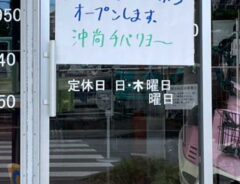 オープンします。
沖尚チバリヨ～
定休日 日・木曜日
曜日
050
40
50